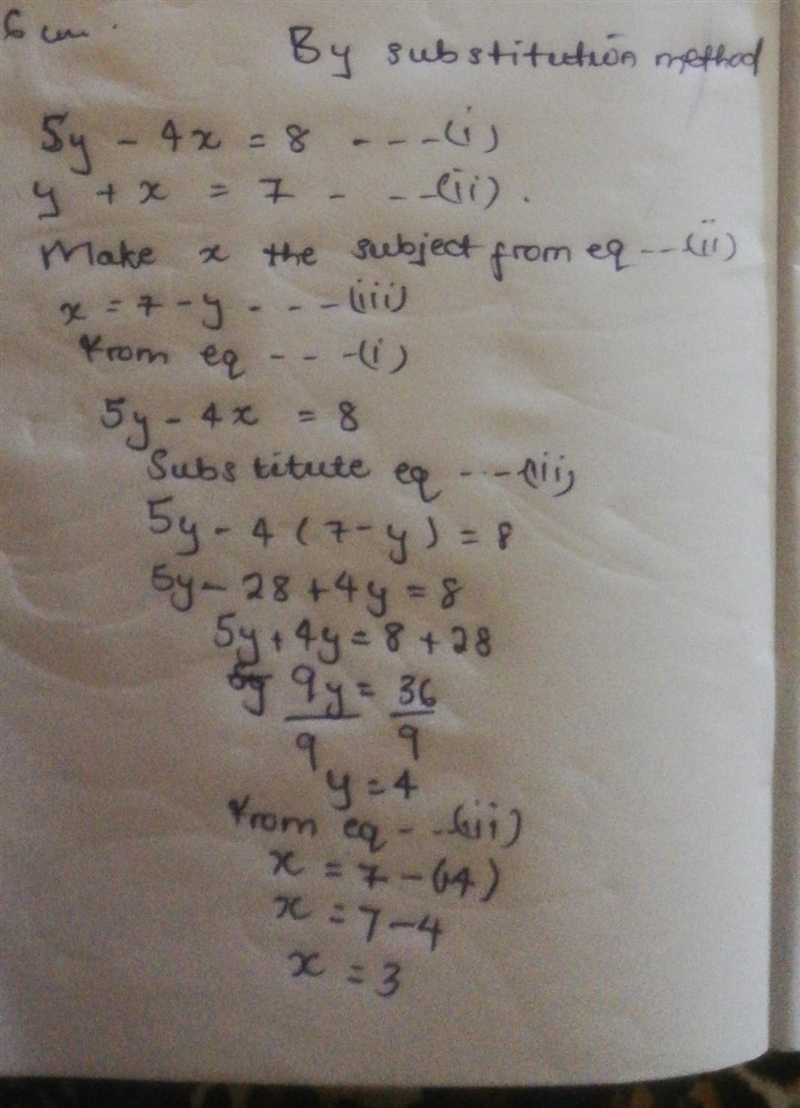 6 cm.
By substitution method
5y - 4x = 8 - - - (i)
y + x = 7 - - - (ii).
Make x the subject from eq -- (ii)
x = 7 - y - - - (iii)
From eq - - - (i)
5y - 4x = 8
Substitute eq - - - (iii)
5y - 4 (7 - y) = 8
5y - 28 + 4y = 8
5y + 4y = 8 + 28
9y = 36
9 9
y = 4
From eq - - - (iii)
x = 7 - (4)
x = 7 - 4
x = 3